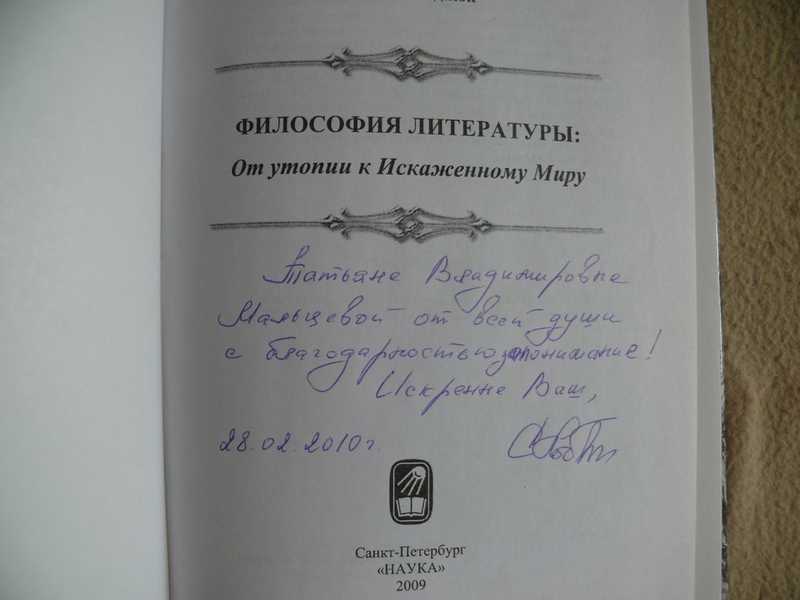 ФИЛОСОФИЯ ЛИТЕРАТУРЫ:
От утопии к Искаженному Миру
Татьяне Владимировне
Мальцевой от всей души
с благодарностью за понимание!
Искренне Ваш,
28.02.2010г.
Санкт-Петербург
«НАУКА»
2009